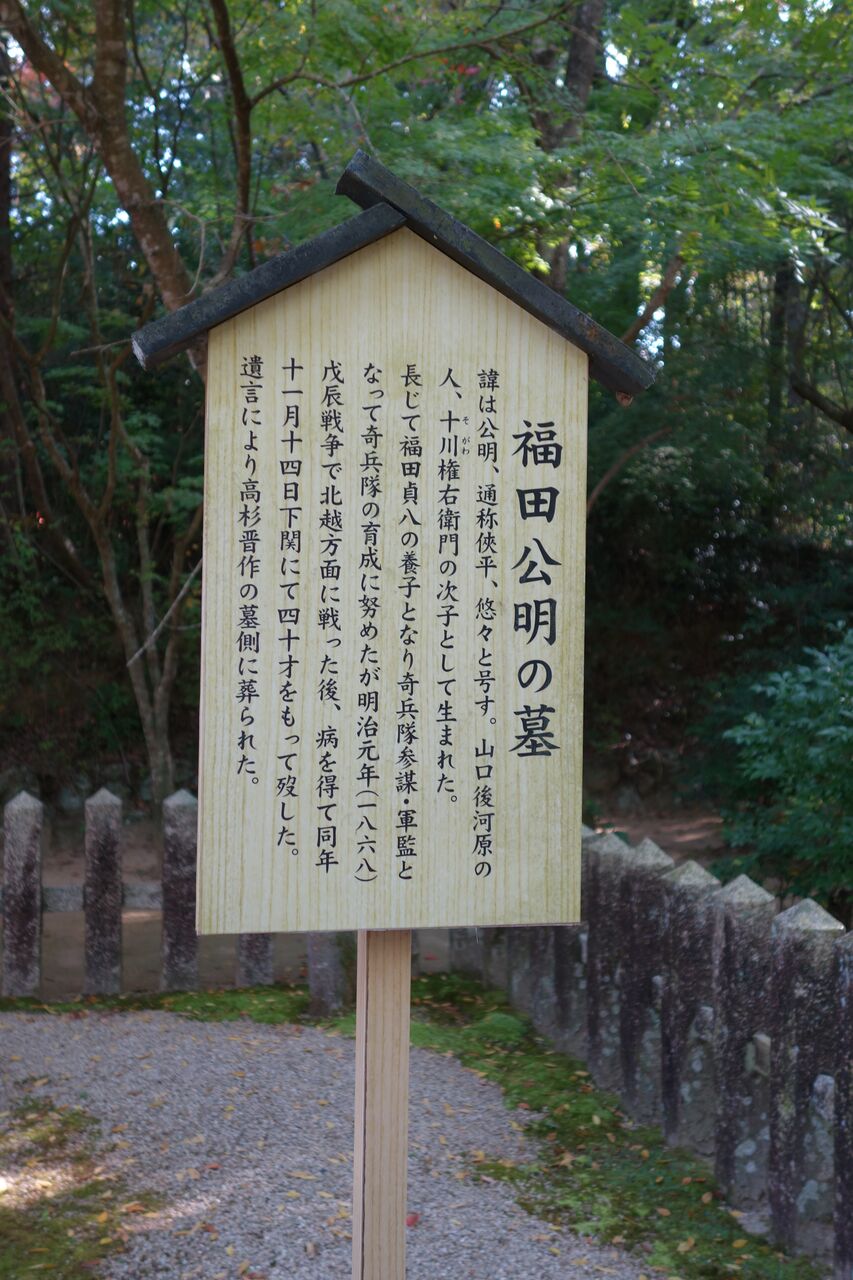 福田公明の墓
諱は公明、通称侠平、悠々と号す。山口後河原の
人、十川権右衛門の次子として生まれた。
そがわ
長じて福田貞八の養子となり奇兵隊参謀・軍監と
なって奇兵隊の育成に努めたが明治元年(一八六八)
戊辰戦争で北越方面に戦った後、病を得て同年
十一月十四日下関にて四十才をもって歿した。
遺言により高杉晋作の墓側に葬られた。